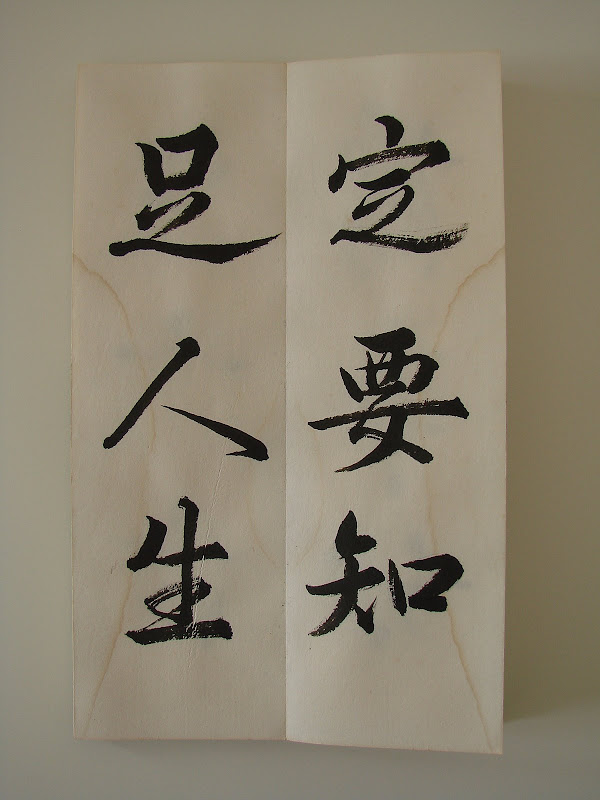 定要知
足人生